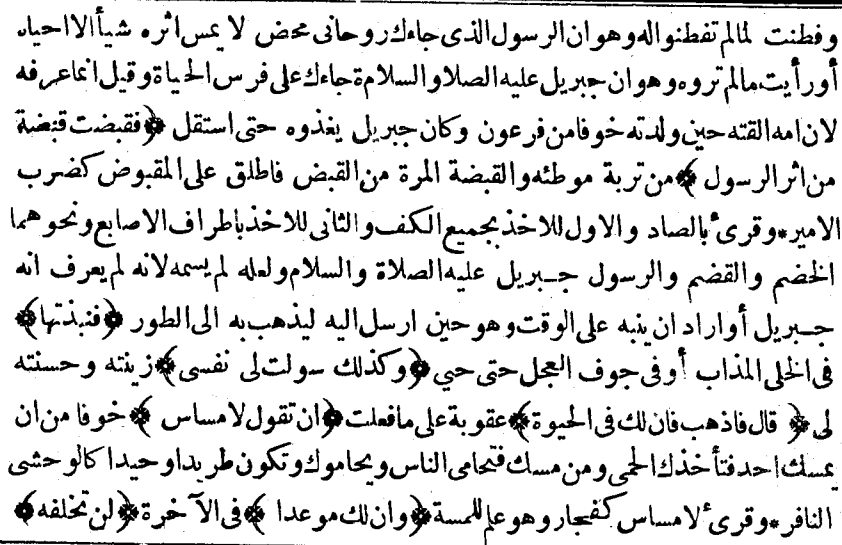 وفطنت لمالم تفطنواله وهو ان الرسول الذى جاءك روحانى محض لا يمس اثره شيأ الا احياه
أورأيت مالم تروه وهو ان جبريل عليه الصلاو السلامة جاءك على فرس الحياة وقيل انما عرفه
لان امه القته حين ولدته خوفا من فرعون وكان جبريل يغذوه حتى استقل ﴿فقبضت قبضة
من اثر الرسول﴾ من تربة موطئه والقبضة المرة من القبض فاطلق على المقبوض كضرب
الامير*وقرئ بالصاد والاول للاخذ بجميع الكف والثانى للاخذ باطراف الاصابع ونحو هما
الخضم والقضم والرسول جبريل عليه الصلاة والسلام ولعله لم يسمه لانه لم يعرف انه
جبريل أواراد ان ينبه على الوقت وهو حين ارسل اليه ليذهب به الى الطور ﴿فنبذتها﴾
فى الحلى المذاب أوفى جوف العجل حتى حيي ﴿وكذلك سولت لى نفسى﴾ زينته وحسنته
لى ﴿قال فاذهب فان لك فى الحيوة﴾ عقوبة على مافعلت ﴿ان تقول لامساس﴾ خوفا من ان
يمسك احد فتأخذك الحمى ومن مسك فتحامى الناس ويحاموك وتكون طريدا وحيدا كالوحشى
النافر*وقرئ لامساس كفجار وهو علم للمسة ﴿وان لك موعدا﴾ فى الآخرة ﴿لن تخلفه﴾